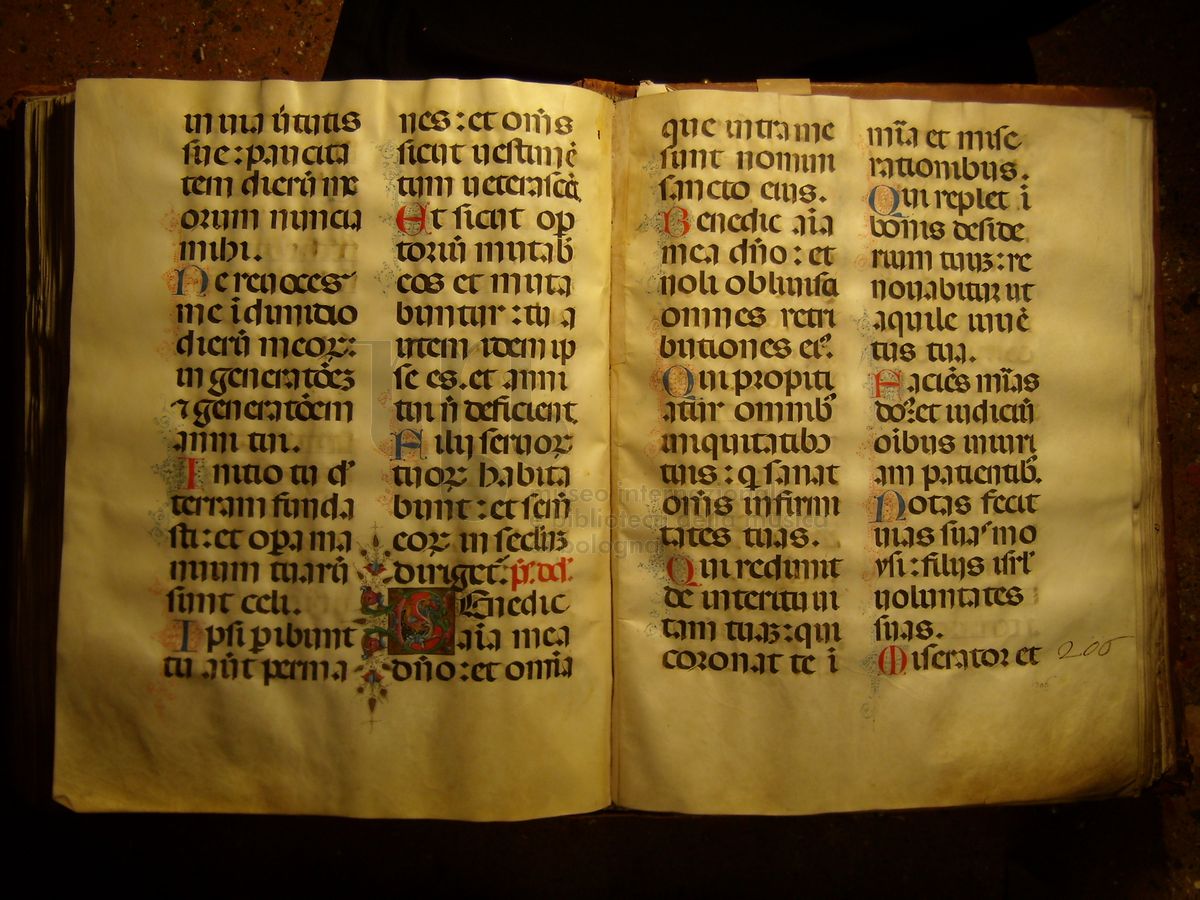 in uia ũtutis
sue : paucita
tem dierũ me
orum nuncia
mihi.
Ne reuoces
me ĩ dimidio
dierũ meoꝝ:
in generatõeʒ
⁊ generatõem
anni tui.
Initio tu dñe
terram funda
sti : et oꝑa ma
nuum tuarũ
sunt celi.
Ipsi ꝑibunt
tu aũt perma
nes : et om̃s
sicut uestimẽ
tum ueterascẽt
Et sicut oꝑ
toriũ mutab̃
eos et muta
buntur : tu a
utem idem ip
se es. et anni
tui ñ deficient
Filij seruoꝝ
tuoꝝ habita
bunt : et sem̃
eoꝝ in sećlũ
diriget. ps. dd.
Benedic
aĩa mea
dño : et omĩa
que intra me
sunt nomini
sancto eius.
Benedic aĩa
mea dño : et
noli obliuisci
omnes retri
butiones eiꝰ.
Qui propiti
atur omnibꝰ
iniquitatibꝰ
tuis : q̃ sanat
om̃s infirmi
tates tuas.
Qui redimit
de interitu ui
tam tuaʒ : qui
coronat te ĩ
mĩa et mise
rationibus.
Qui replet ĩ
bonis deside
rium tuuʒ : re
nouabitur ut
aquile iuuẽ
tus tua.
Faciẽs mĩas
dñs : et iudiciũ
oĩbus iniuri
am patientib̃.
Notas fecit
uias suas mo
ysi : filijs isrl̃
uoluntates
suas.
Miserator et
206
museo internazionale
e biblioteca della musica
bologna